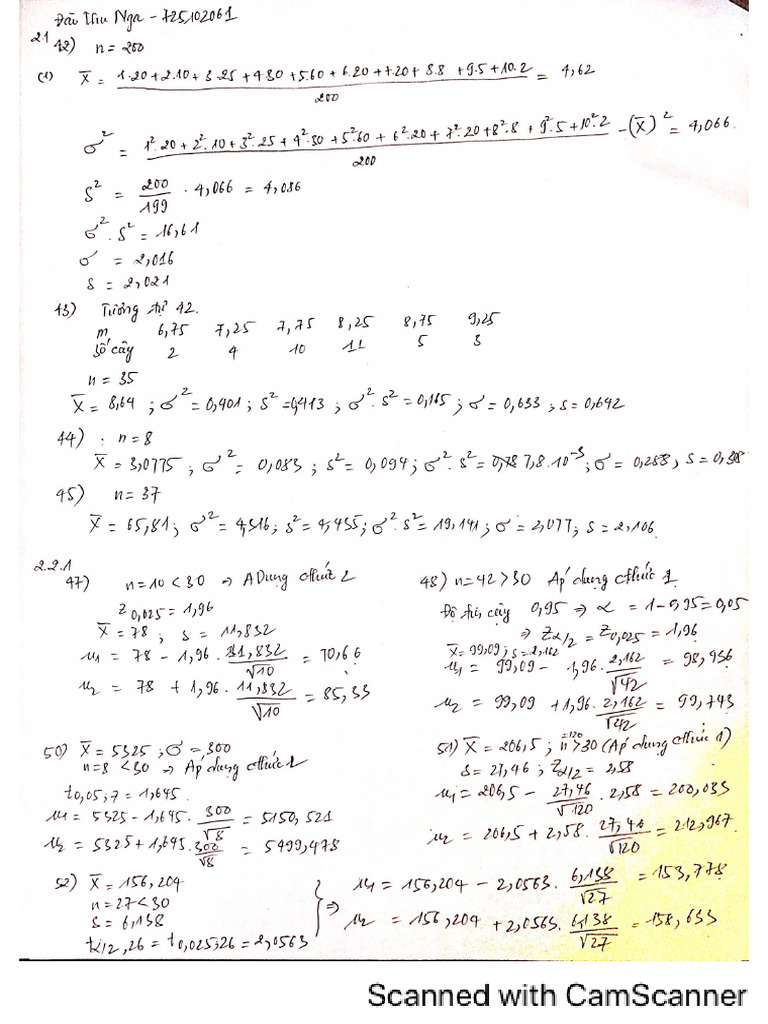 Đào Thu Nga - 725102061
2.1
42) n = 200
(1) X̄ = (1.20 + 2.10 + 3.25 + 4.30 + 5.60 + 6.20 + 7.20 + 8.8 + 9.5 + 10.2) / 200 = 4,62
σ² = (1².20 + 2².10 + 3².25 + 4².30 + 5².60 + 6².20 + 7².20 + 8².8 + 9².5 + 10².2) / 200 - (X̄)² = 4,066.
S² = 200/199 . 4,066 = 4,086
σ².S² = 16,61
σ = 2,016
s = 2,021
43) Tương tự 42.
m 6,75 7,25 7,75 8,25 8,75 9,25
Số cây 2 4 10 11 5 3
n = 35
X̄ = 8,64 ; σ² = 0,401 ; s² = 0,413 ; σ².s² = 0,165 ; σ = 0,633 ; s = 0,642
44) . n = 8
X̄ = 3,0775 ; σ² = 0,083 ; s² = 0,094 ; σ².s² = 7,8.10⁻³ ; σ = 0,288 , s = 0,38
45) n = 37
X̄ = 65,81 ; σ² = 4,316 ; s² = 4,435 ; σ².s² = 19,141 ; σ = 2,077 ; s = 2,106.
2.2.1
47) n = 10 < 30 → A Dụng thức 2
z 0,025 = 1,96
X̄ = 78 ; s = 11,832
μ1 = 78 - 1,96 . 11,832/√10 = 70,66
μ2 = 78 + 1,96 . 11,832/√10 = 85,33
48) n = 42 > 30 Áp dụng thức 1
Độ tin cậy 0,95 ⇒ α = 1 - 0,95 = 0,05
⇒ Zα/2 = Z0,025 = 1,96
X̄ = 99,09 ; s = 2,162
μ1 = 99,09 - 1,96 . 2,162/√42 = 98,436
μ2 = 99,09 + 1,96 . 2,162/√42 = 99,743
50) X̄ = 5325 ; σ = 300
n = 8 < 30 → Áp dụng thức 1
t0,05;7 = 1,645.
μ1 = 5325 - 1,645 . 300/√8 = 5150,521
μ2 = 5325 + 1,645 . 300/√8 = 5499,478
51) X̄ = 206,5 ; n=120 > 30 (Áp dụng thức 1)
s = 27,46 ; Zα/2 = 2,58
μ1 = 206,5 - 27,46/√120 . 2,58 = 200,033
μ2 = 206,5 + 2,58 . 27,46/√120 = 212,967.
52) X̄ = 156,204
n = 27 < 30
s = 6,138
tα/2, 26 = t0,025;26 = 2,0563
⇒ μ1 = 156,204 - 2,0563 . 6,138/√27 = 153,778
μ2 = 156,204 + 2,0563 . 6,138/√27 = 158,633
Scanned with CamScanner